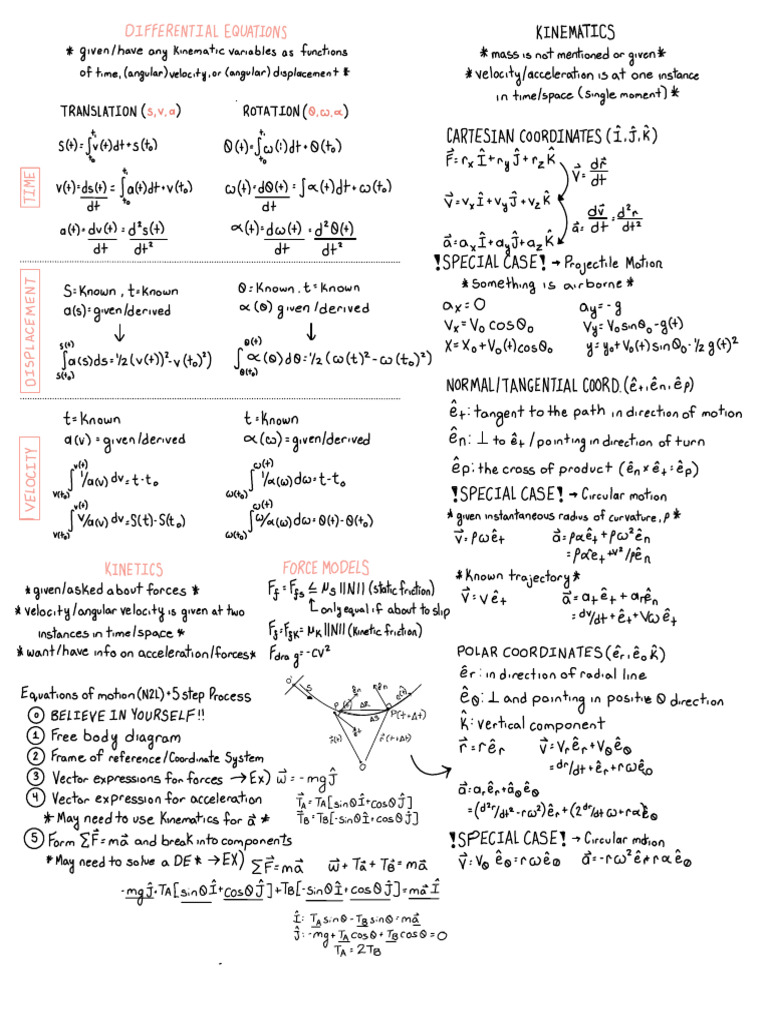 DIFFERENTIAL EQUATIONS
* given/have any kinematic variables as functions
of time, (angular) velocity, or (angular) displacement *
TRANSLATION (s, v, a)
ROTATION (θ, ω, α)
TIME
S(t)=∫v(t)dt+s(t₀)
t₀ t
θ(t)=∫ω(:)dt+θ(t₀)
t₀ t
v(t)=ds(t)/dt=∫a(t)dt+v(t₀)
t₀ t
ω(t)=dθ(t)/dt=∫α(t)dt+ω(t₀)
a(t)=dv(t)/dt=d²s(t)/dt²
α(t)=dω(t)/dt=d²θ(t)/dt²
DISPLACEMENT
S=Known, t=Known
a(s)=given/derived
↓
∫a(s)ds=1/2(v(t))²-v(t₀)²)
s(t₀) s(t)
θ=Known, t=Known
α(θ) given/derived
↓
∫α(θ)dθ=1/2(ω(t)²-ω(t₀)²)
θ(t₀) θ(t)
VELOCITY
t=Known
a(v)=given/derived
∫1/a(v) dv=t-t₀
v(t₀) v(t)
∫v/a(v) dv=S(t)-S(t₀)
v(t₀) v(t)
t=Known
α(ω)=given/derived
∫1/α(ω)dω=t-t₀
ω(t₀) ω(t)
∫ω/α(ω)dω=θ(t)-θ(t₀)
ω(t₀) ω(t)
KINETICS
* given/asked about forces *
* velocity/angular velocity is given at two
instances in time/space *
* want/have info on acceleration/forces *
FORCE MODELS
F_f=F_fs ≤ μ_s ||N|| (static friction)
only equal if about to slip
F_f=F_fk=μ_k||N|| (kinetic friction)
F_drag=-CV²
Equations of motion (N2L) + 5 step Process
0 BELIEVE IN YOURSELF!!
1 Free body diagram
2 Frame of reference/Coordinate System
3 Vector expressions for forces → Ex) w⃗=-mgĴ
4 Vector expression for acceleration
T⃗_A=T_A[sinθÎ+cosθĴ]
T⃗_B=T_B[-sinθÎ+cosθĴ]
* May need to use Kinematics for a⃗ *
5 Form ΣF⃗=ma⃗ and break into components
* May need to solve a DE* → EX) ΣF⃗=ma⃗ w⃗+T⃗a+T⃗B=ma⃗
-mgĴ+TA[sinθÎ+cosθĴ]+TB[-sinθÎ+cosθĴ]=ma⃗Î
Î: T_A sinθ-T_B sinθ=ma⃗
Ĵ:-mg+T_A cosθ+T_B cosθ=0
T_A=2T_B
O'
S
P
ΔR
ΔS
P'(t+Δt)
r⃗(t)
r⃗(t+Δt)
O
KINEMATICS
* mass is not mentioned or given *
* velocity/acceleration is at one instance
in time/space (single moment) *
CARTESIAN COORDINATES (Î, Ĵ, K̂)
r⃗=r_xÎ+r_yĴ+r_zK̂
v⃗=dr⃗/dt
v⃗=v_xÎ+v_yĴ+v_zK̂
a⃗=dv⃗/dt=d²r/dt²
a⃗=a_xÎ+a_yĴ+a_zK̂
!SPECIAL CASE! → Projectile Motion
* Something is airborne *
a_x=0
a_y=-g
V_x=V₀cosθ₀
V_y=V₀sinθ₀-g(t)
X=X₀+V₀(t)cosθ₀
y=y₀+V₀(t)sinθ₀-1/2g(t)²
NORMAL/TANGENTIAL COORD. (ê_t, ê_n, ê_p)
ê_t: tangent to the path in direction of motion
ê_n: ⊥ to ê_t / pointing in direction of turn
ê_p: the cross of product (ê_n×ê_t=ê_p)
!SPECIAL CASE! → Circular motion
* given instantaneous radius of curvature, ρ *
v⃗=ρωê_t
a⃗=ραê_t+ρω²ê_n
=ραê_t+v²/ρê_n
* Known trajectory *
v⃗=vê_t
a⃗=a_tê_t+a_nê_n
=dv/dt+ê_t+Vωê_t
POLAR COORDINATES (ê_r, ê_θ, k̂)
ê_r: in direction of radial line
ê_θ: ⊥ and pointing in positive θ direction
k̂: vertical component
r⃗=rê_r
v⃗=V_rê_r+V_θê_θ
=dr/dt+ê_r+rωê_θ
a⃗=a_rê_r+a_θê_θ
=(d²r/dt²-rω²)ê_r+(2dr/dtω+rα)ê_θ
!SPECIAL CASE! → Circular motion
v⃗=V_θê_θ=rωê_θ
a⃗=-rω²ê_r+rαê_θ